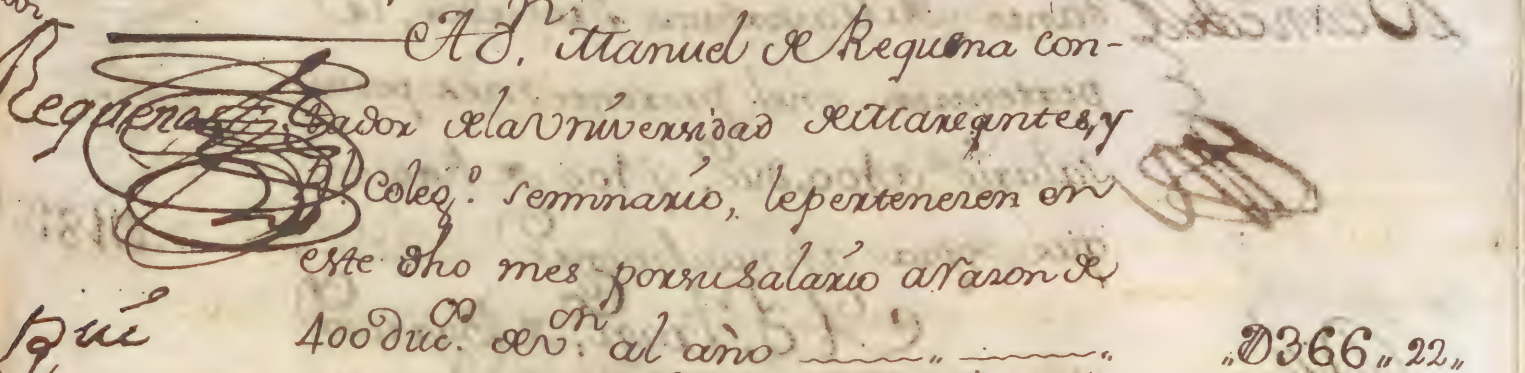 A D.ⁿ Manuel de Requena con-
tador de la Vniversidad de Mareantes, y
R.l Coleg.º Seminario, le pertenezen en
este dho mes por su salario a razon de
400 duc.ᵒˢ de v.ᵒⁿ al año
„D366„22„
Requena